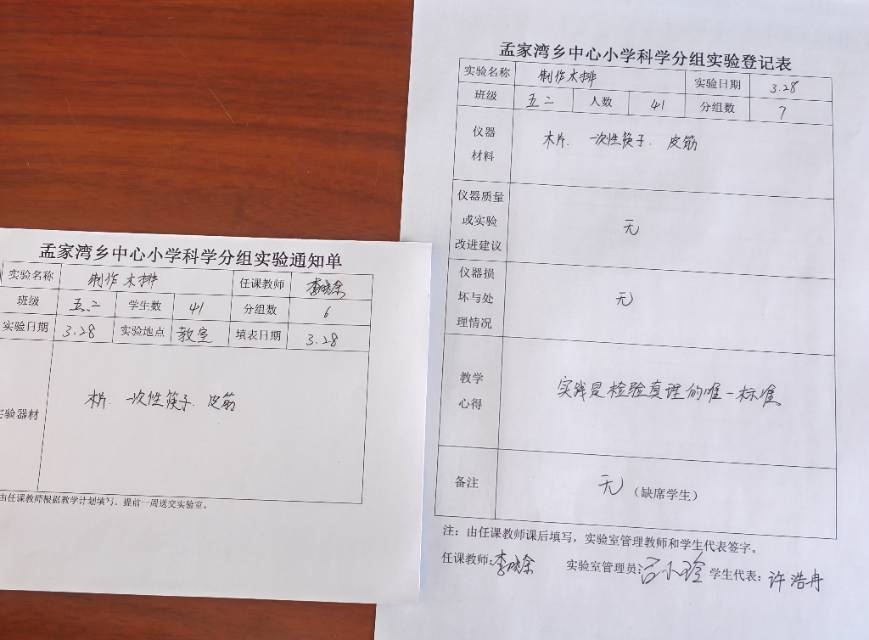 孟家湾乡中心小学科学分组实验通知单
实验名称 制作木排 任课教师
班级 五.二 学生数 41 分组数 6
实验日期 3.28 实验地点 教室 填表日期 3.28
实验器材 木片. 一次性筷子. 皮筋
由任课教师根据教学计划填写，提前一周送交实验室。
孟家湾乡中心小学科学分组实验登记表
实验名称 制作木排 实验日期 3.28
班级 五二 人数 41 分组数 7
仪器
材料
木片. 一次性筷子. 皮筋
仪器质量
或实验
改进建议
无
仪器损
坏与处
理情况
无
教学
心得
实践是检验真理的唯一标准
备注 无（缺席学生）
注：由任课教师课后填写，实验室管理教师和学生代表签字。
任课教师: 实验室管理员: 学生代表: 许浩冉